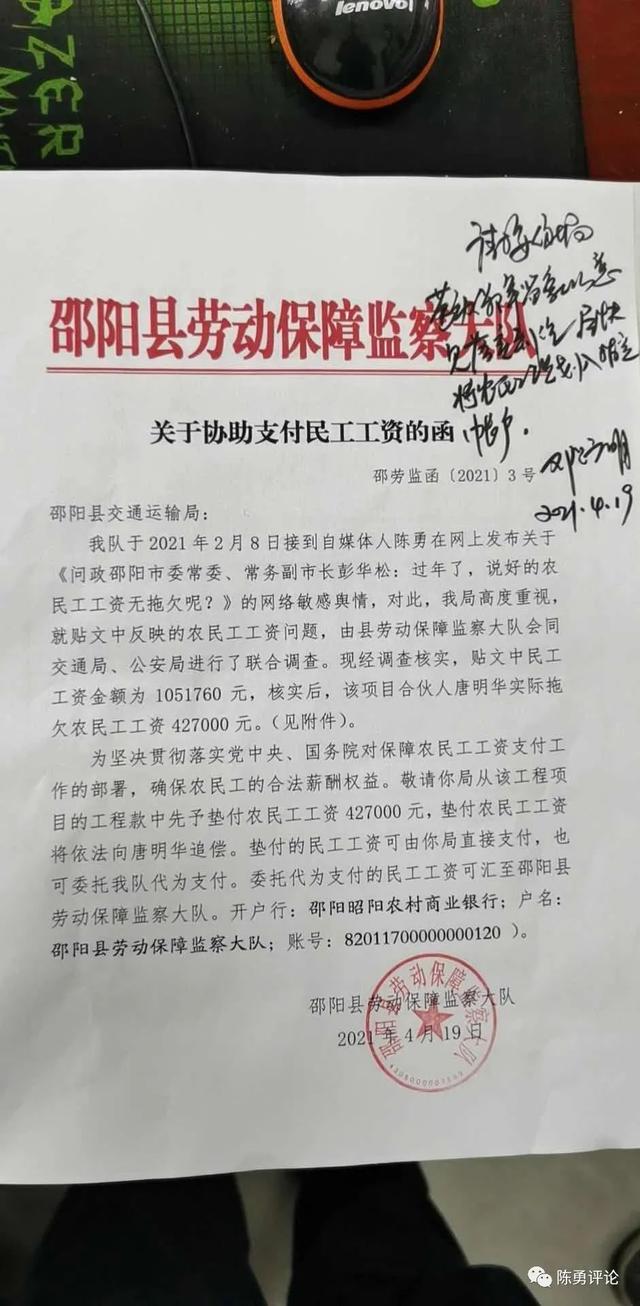 AZER
MANT
lenovo
邵阳县劳动保障监察大队
关于协助支付民工工资的函
邵劳监函〔2021〕3 号
2021.4.19
邵阳县交通运输局：
我队于 2021 年 2 月 8 日接到自媒体人陈勇在网上发布关于
《问政邵阳市委常委、常务副市长彭华松：过年了，说好的农
民工工资无拖欠呢？》的网络敏感舆情，对此，我局高度重视，
就贴文中反映的农民工工资问题，由县劳动保障监察大队会同
交通局、公安局进行了联合调查。现经调查核实，贴文中民工
工资金额为 1051760 元，核实后，该项目合伙人唐明华实际拖
欠农民工工资 427000 元。（见附件）。
为坚决贯彻落实党中央、国务院对保障农民工工资支付工
作的部署，确保农民工的合法薪酬权益。敬请你局从该工程项
目的工程款中先予垫付农民工工资 427000 元，垫付农民工工资
将依法向唐明华追偿。垫付的民工工资可由你局直接支付，也
可委托我队代为支付。委托代为支付的民工工资可汇至邵阳县
劳动保障监察大队。开户行：邵阳昭阳农村商业银行；户名：
邵阳县劳动保障监察大队；账号：82011700000000120 ）。
邵阳县劳动保障监察大队
2021 年 4 月 19 日
邵阳县劳动保障监察大队
陈勇评论